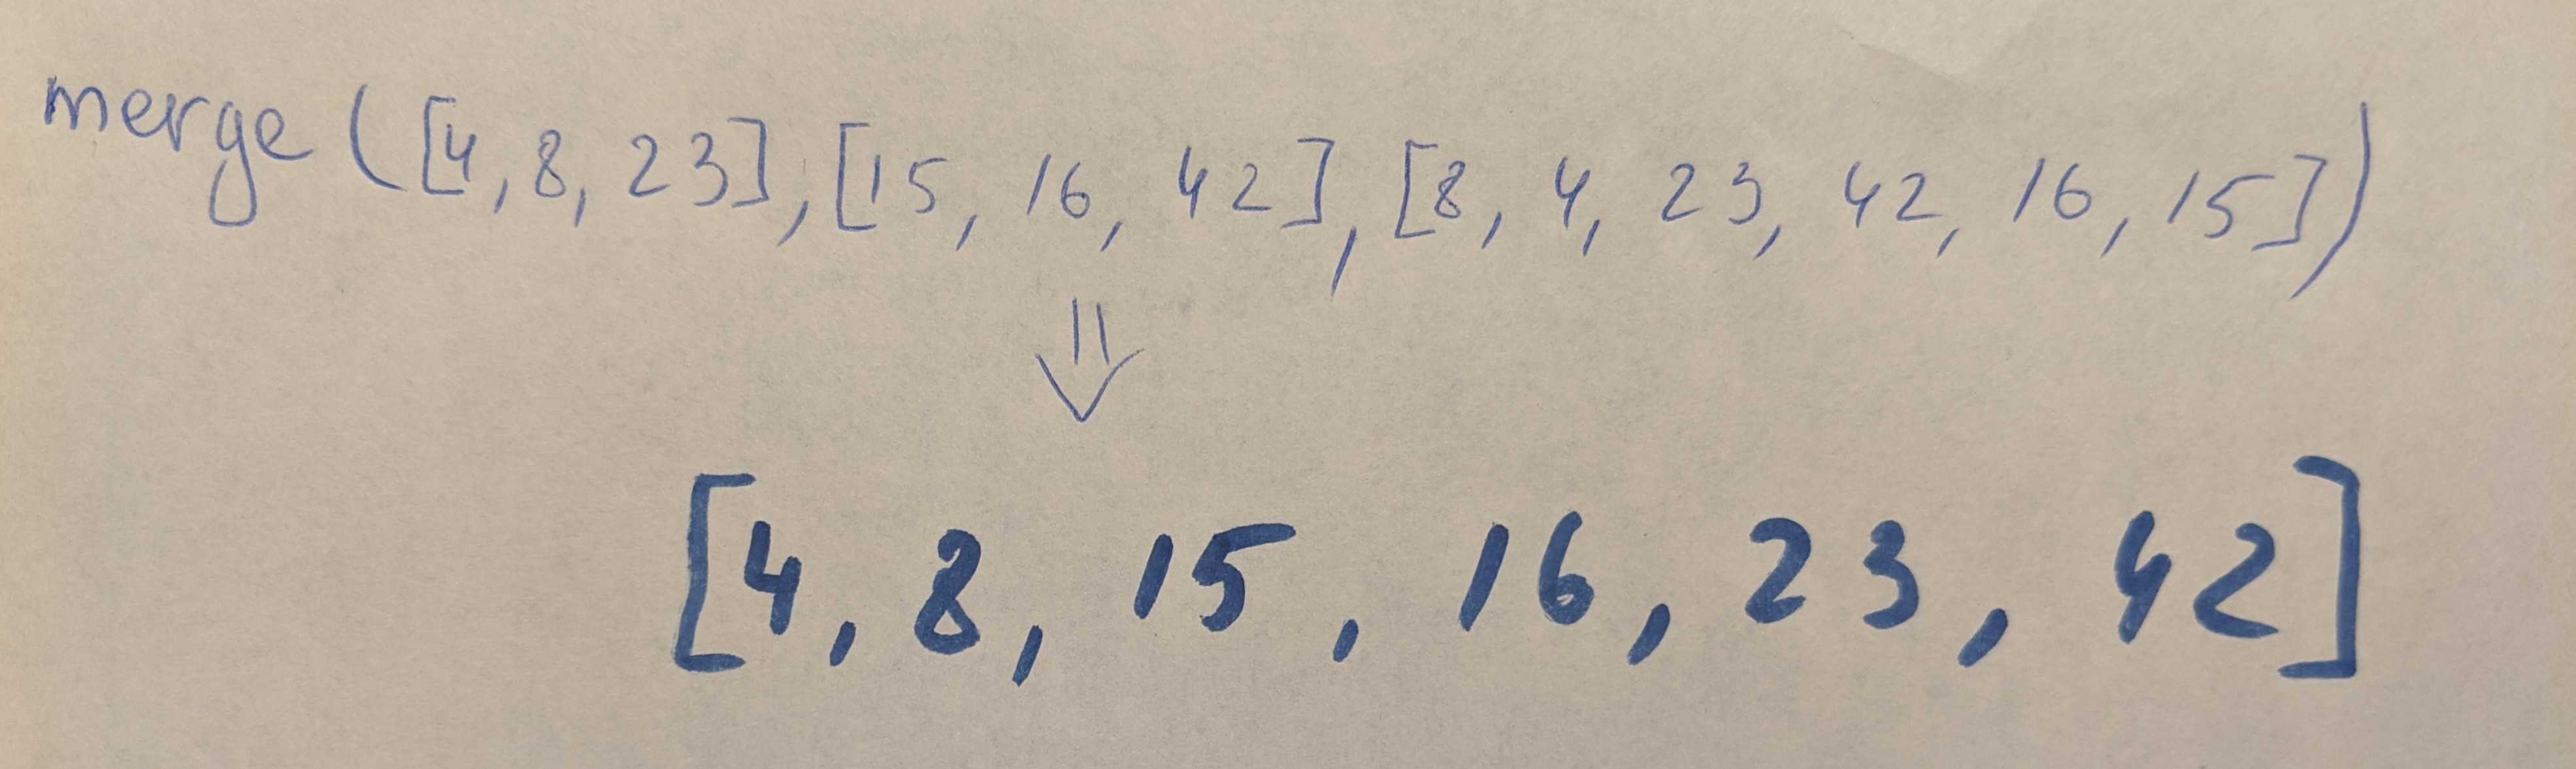 merge([4,8,23],[15, 16, 42],[8, 4, 23, 42, 16, 15])
⇓
[4, 8, 15, 16, 23, 42]